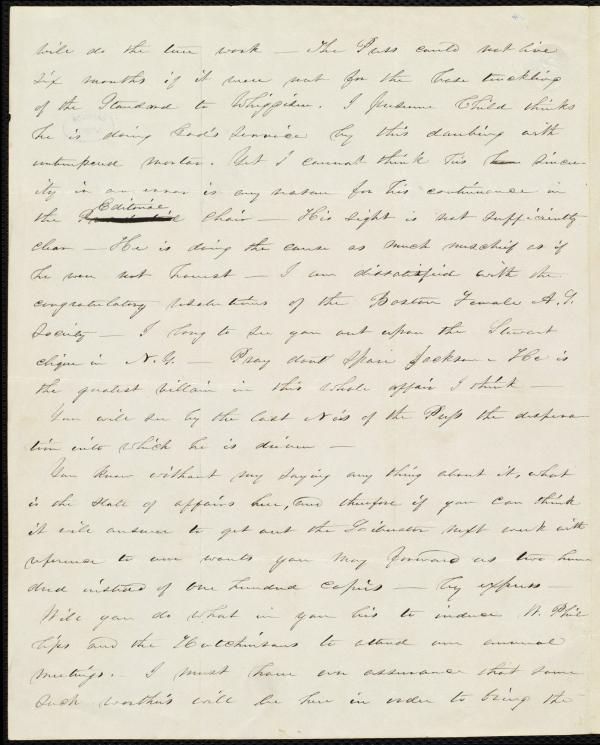 will do the sure work — The Press could not live
six months if it were not for the base truckling
of the Standard to Whiggism. I presume Child thinks
he is doing God's service by this daubing with
untempered mortar. Yet I cannot think his sincer-
ity in an error is any reason for his continuance in
the Editorial chair — His sight is not sufficiently
clear — He is doing the cause as much mischief as if
he were not honest — I am dissatisfied with the
congratulatory resolutions of the Boston Female A.S.
Society — I long to see you out upon the Stewart
clique in N.Y. — Pray dont spare Jackson — He is
the greatest villain in this whole affair I think —
You will see by the last Nos of the Press the despera-
tion into which he is driven —
You know without my saying any thing about it, what
is the state of affairs here, and therefore if you can think
it will answer to get out the Liberator next week with
reference to our wants you may forward us two hun-
dred instead of one hundred copies — by express —
Will you do what in you lies to induce W. Phil-
lips and the Hutchinsons to attend our annual
meetings. — I must have an assurance that some
such worthies will be here in order to bring the